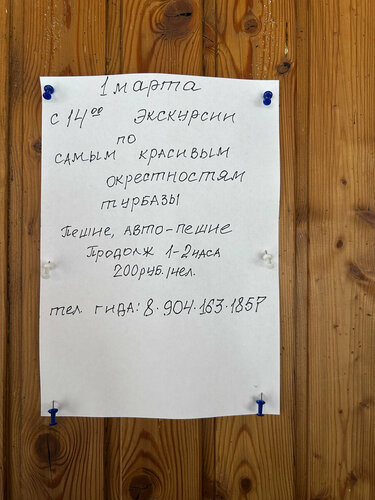 1 марта
с 14⁰⁰ экскурсии
по
самым красивым
окрестностям
турбазы
Пешие, авто-пешие
Продолж 1-2 часа
200 руб./чел.
тел гида: 8.904.163.1857